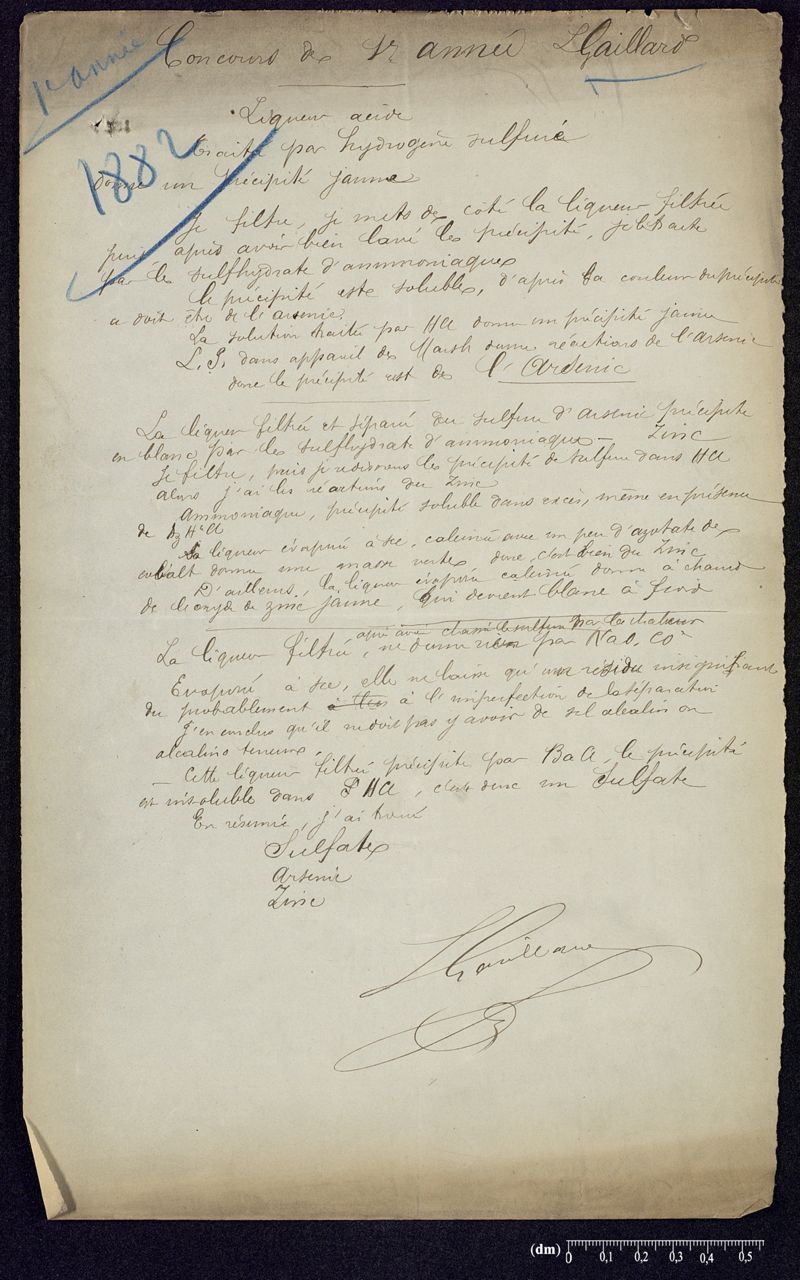 1e année
Concours de 1re année L Gaillard
1882
Liqueur acide
Traité par hydrogène sulfuré
donne un précipité jaune
Je filtre, je mets de côté la liqueur filtrée
puis après avoir bien lavé le précipité, je le traite
par le sulfhydrate d'ammoniaque
le précipité est soluble, d'après la couleur du précipité
a doit être de l'arsenic.
La solution traitée par HCl donne un précipité jaune
L. P. dans appareil de Marsh donne réactions de l'arsenic
donc le précipité est de l'Arsenic
La liqueur filtrée et séparé du sulfure d'arsenic précipite
en blanc par le sulfhydrate d'ammoniaque – Zinc
Je filtre, puis je redissous le précipité de sulfure dans HCl
alors j'ai les réactions du Zinc
Ammoniaque, précipité soluble dans excès, même en présence
de AzH4Cl
La liqueur évaporé à sec, calciné avec un peu d'azotate de
cobalt donne une masse verte, donc c'est bien du Zinc
D'ailleurs, la liqueur évaporé calciné donne à chaud
de l'oxyde de zinc jaune, qui devient blanc à froid
après avoir chassé le sulfure par la chaleur
La liqueur filtrée, ne donne rien par NaO, CO2
Evaporé à sec, elle ne laisse qu'un résidu insignifiant
du probablement à l'imperfection de la séparation
J'en conclus qu'il ne doit pas y avoir de sel alcalin ou
alcalino terreux.
– Cette liqueur filtré précipite par BaCl, le précipité
est insoluble dans HCl, c'est donc un Sulfate
En résumé, j'ai trouvé
Sulfate
Arsenic
Zinc
L Gaillard
(dm) 0 0,1 0,2 0,3 0,4 0,5